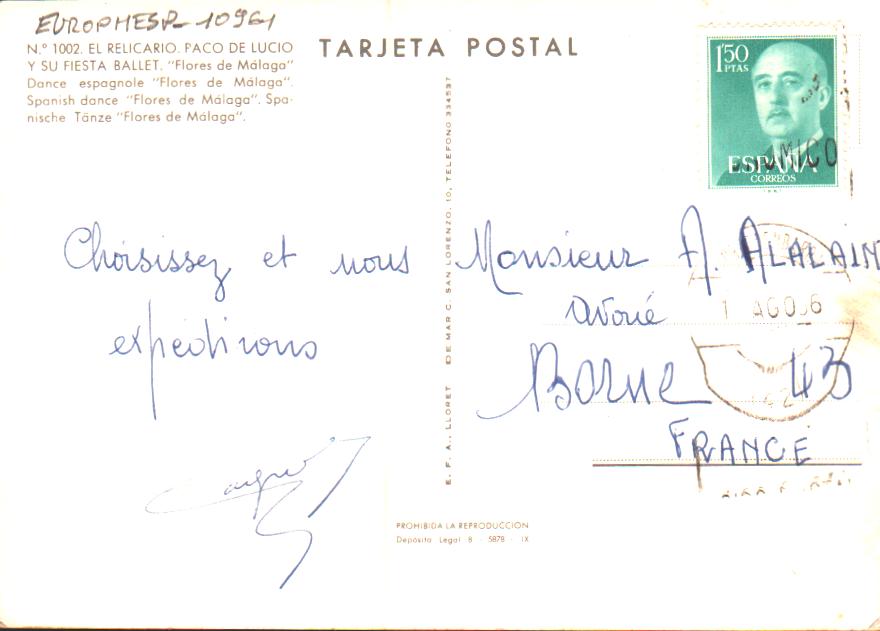 N.º 1002. EL RELICARIO. PACO DE LUCIO
Y SU FIESTA BALLET. "Flores de Málaga"
Dance espagnole "Flores de Málaga".
Spanish dance "Flores de Málaga". Spa-
nische Tänze "Flores de Málaga".
TARJETA POSTAL
1'50
PTAS
ESPAÑA
CORREOS
Choisissez et nous
expédirons
E. F. A., LLORET DE MAR C. SAN LORENZO, 10, TELEFONO 334537
Monsieur A. ALALAIN
avoué
Borne 43
FRANCE
1 AGO
PROHIBIDA LA REPRODUCCION
Depósito Legal B - 5878 - IX